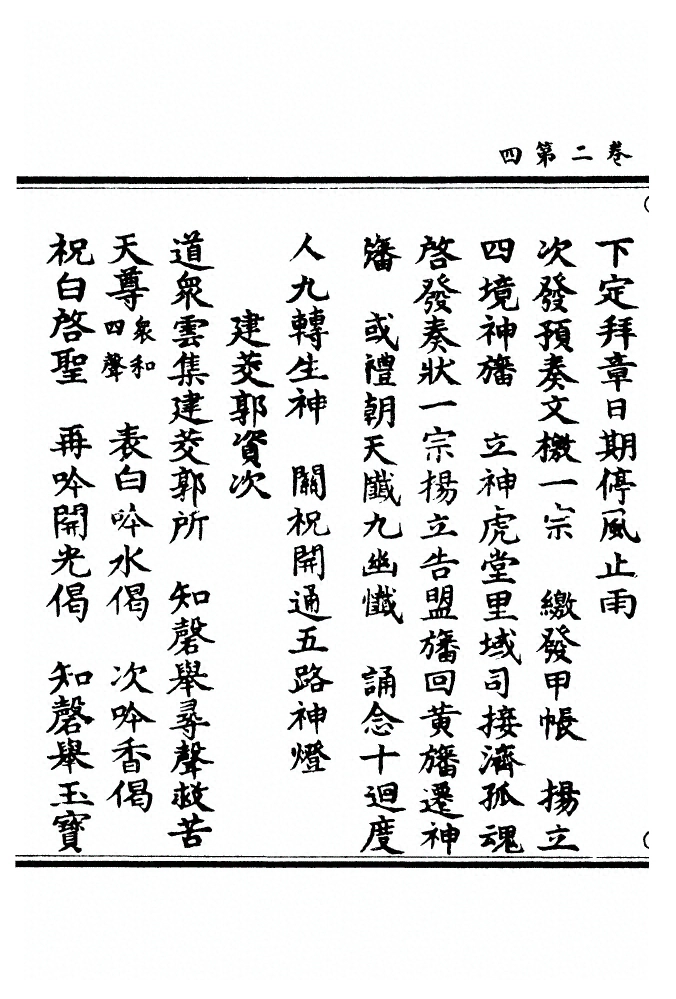 卷二第四
下定拜章日期停風止雨
次發預奏文檄一宗　繳發甲帳　揚立
四境神旛　立神虎堂里域司接濟孤魂
啓發奏狀一宗揚立告盟旛回黃旛遷神
旛　或禮朝天懺九幽懺　誦念十迴度
人九轉生神　關祝開通五路神燈
建茭郭資次
道衆雲集建茭郭所　知磬舉尋聲救苦
天尊衆和四聲　表白吟水偈　次吟香偈
祝白啓聖　再吟開光偈　知磬舉玉寶